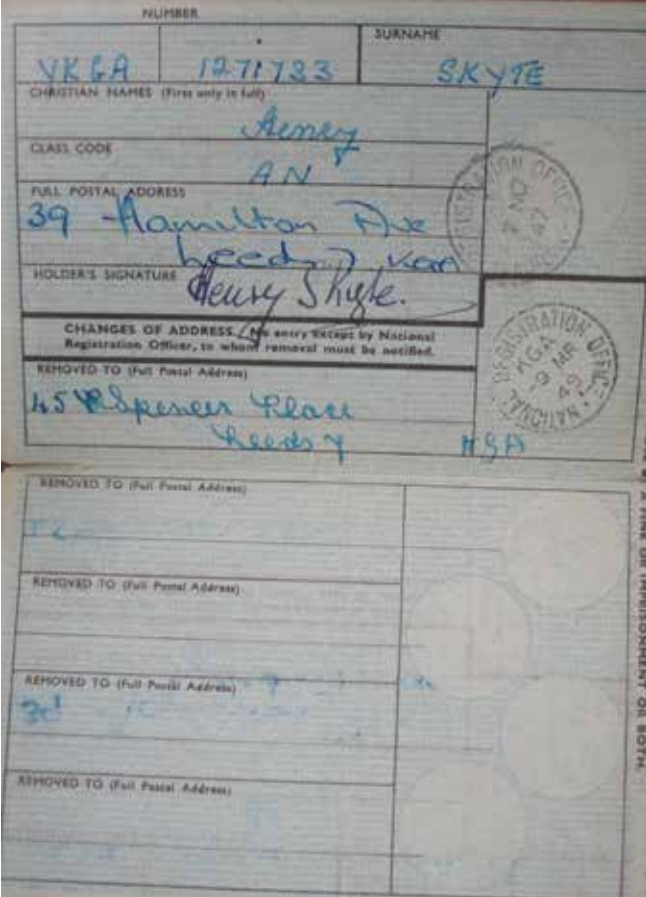 NUMBER
SURNAME
VKGA 1271733 SKYTE
CHRISTIAN NAMES (First only in full)
Henry
CLASS CODE
AN
FULL POSTAL ADDRESS
39 Hamilton Ave
Leeds 7
HOLDER'S SIGNATURE
Henry Skyte.
REGISTRATION OFFICE
2 NO
47
CHANGES OF ADDRESS. No entry except by National
Registration Officer, to whom removal must be notified.
REMOVED TO (Full Postal Address)
45 Spencer Place
Leeds 7 HGA
NATIONAL REGISTRATION OFFICE
HGA
9 MR
49
REMOVED TO (Full Postal Address)
REMOVED TO (Full Postal Address)
REMOVED TO (Full Postal Address)
REMOVED TO (Full Postal Address)
A FINE OR IMPRISONMENT OR BOTH.